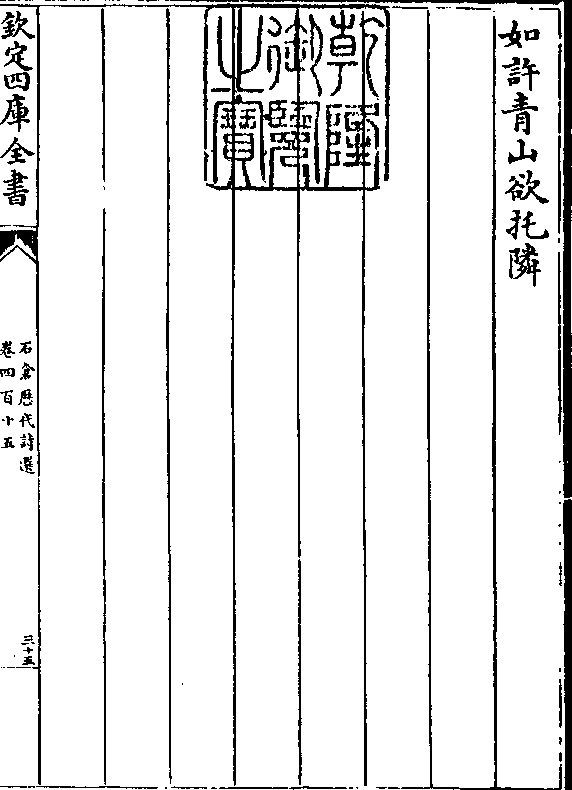 如許青山欲托隣
乾隆
御覽
之寶
欽定四庫全書
石倉歴代詩選
卷四百十五
三十五